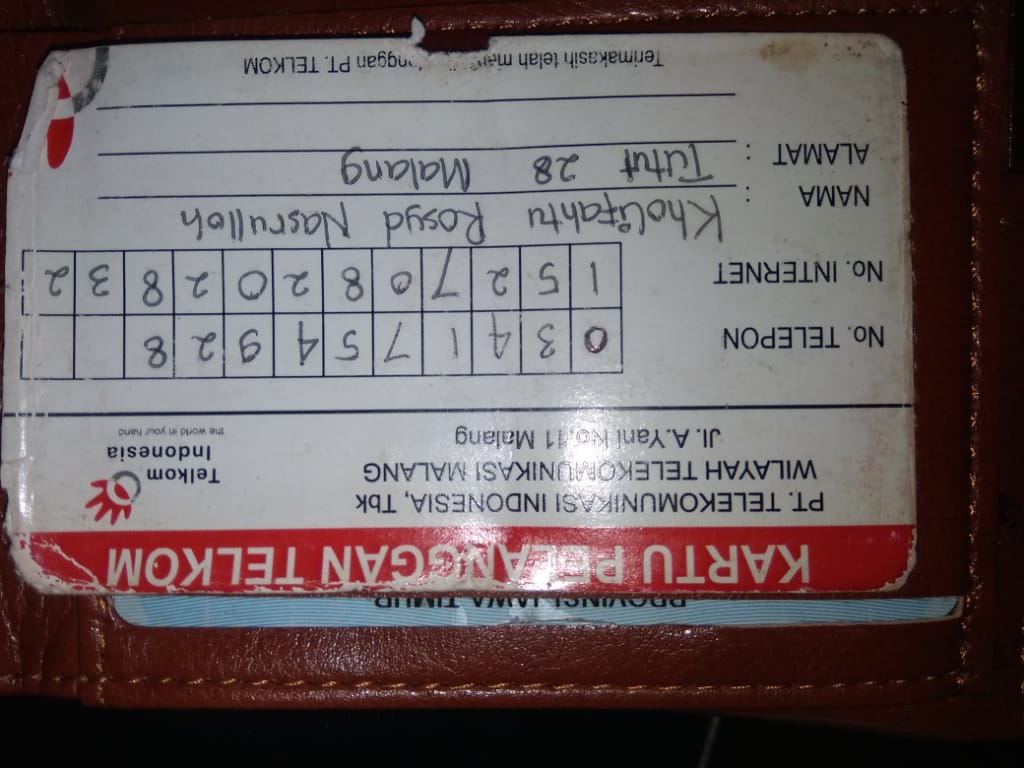 PROVINSI JAWA TIMUR
KARTU PELANGGAN TELKOM
PT. TELEKOMUNIKASI INDONESIA, Tbk
WILAYAH TELEKOMUNIKASI MALANG
Jl. A.Yani No.11 Malang
Telkom
Indonesia
the world in your hand
No. TELEPON 0 3 4 1 7 5 4 9 2 8
No. INTERNET 1 5 2 7 0 8 2 0 2 8 3 2
NAMA : Kholifahtu Rosyd Nasrulloh
ALAMAT : Tutut 28 Malang
Terimakasih telah PT. TELKOM